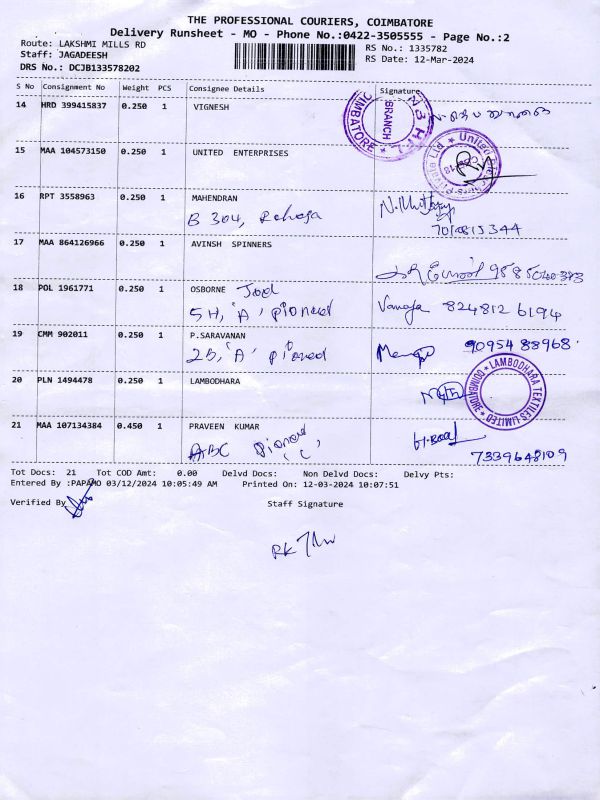 THE PROFESSIONAL COURIERS, COIMBATORE
Delivery Runsheet - MO - Phone No.:0422-3505555 - Page No.:2
Route: LAKSHMI MILLS RD
RS No.: 1335782
Staff: JAGADEESH
RS Date: 12-Mar-2024
DRS No.: DCJB133578202
S No Consignment No Weight PCS Consignee Details Signature
14 HRD 399415837 0.250 1 VIGNESH
COIMBATORE BRANCH
15 MAA 104573150 0.250 1 UNITED ENTERPRISES
16 RPT 3558963 0.250 1 MAHENDRAN
B 304, Raheja
7010815344
17 MAA 864126966 0.250 1 AVINSH SPINNERS
18 POL 1961771 0.250 1 OSBORNE
5H, 'A', Vanaja 8248126194
19 CMM 902011 0.250 1 P.SARAVANAN
2B, 'A' 9095488968
20 PLN 1494478 0.250 1 LAMBODHARA
LAMBODHARA TEXTILES LIMITED COIMBATORE
21 MAA 107134384 0.450 1 PRAVEEN KUMAR
ABC 'C'
7339648109
Tot Docs: 21 Tot COD Amt: 0.00 Delvd Docs: Non Delvd Docs: Delvy Pts:
Entered By :PAPAMO 03/12/2024 10:05:49 AM Printed On: 12-03-2024 10:07:51
Verified By
Staff Signature